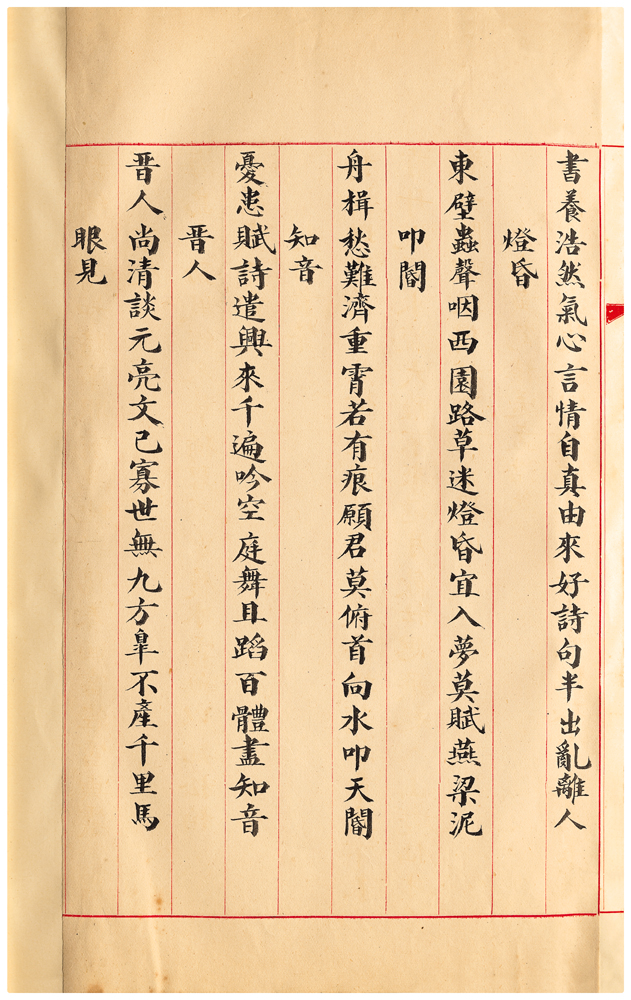 書養浩然氣心言情自真由來好詩句半出亂離人
燈昏
東壁蟲聲咽西園路草迷燈昏宜入夢莫賦燕梁泥
叩閽
舟楫愁難濟重霄若有痕願君莫俯首向水叩天閽
知音
憂患賦詩遣興來千遍吟空庭舞且蹈百體盡知音
晋人
晋人尚清談元亮文已寡世無九方臯不產千里馬
眼見